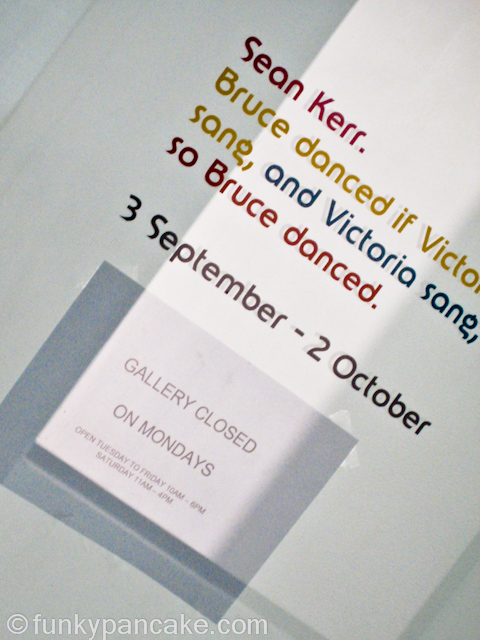 Sean Kerr.
Bruce danced if Victor
sang, and Victoria sang,
so Bruce danced.
3 September - 2 October
GALLERY CLOSED
ON MONDAYS
OPEN TUESDAY TO FRIDAY 10AM - 6PM
SATURDAY 11AM - 4PM
© funkypancake.com